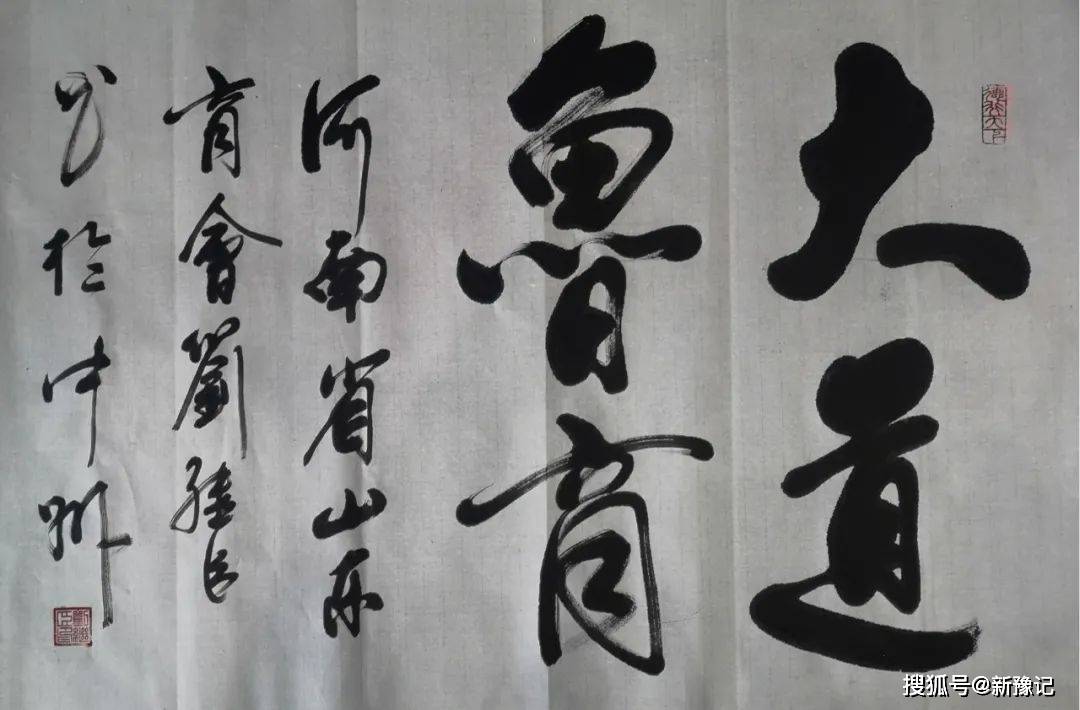 大道
魯商
河南省山东
商會劉繼臣
书於中州
搜狐号@新豫记